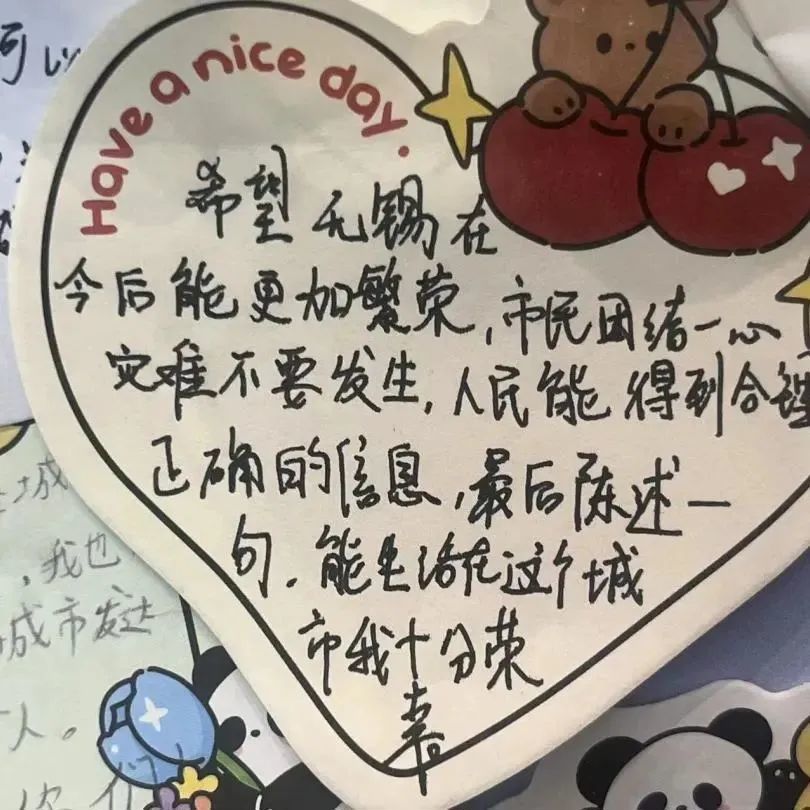 Have a nice day.
希望无锡在
今后能更加繁荣,市民团结一心
灾难不要发生,人民能得到合理
正确的信息,最后陈述一
句,能生活在这个城
市我十分荣
幸
可以
城
,我也
城市发达
人。
你们